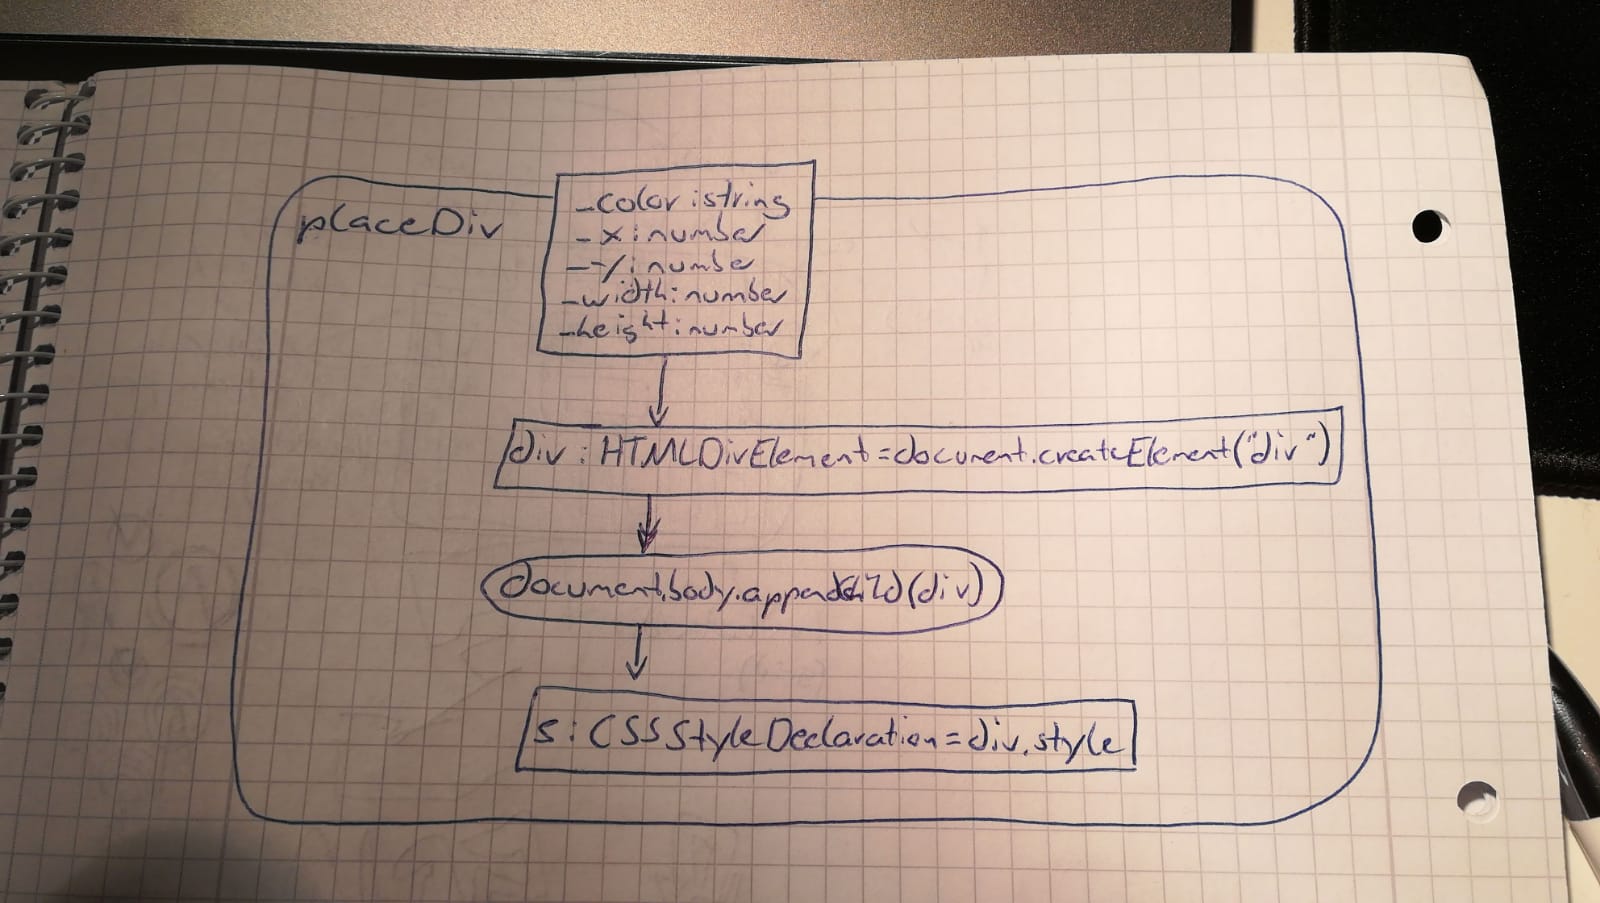 placeDiv
_color:string
_x:number
_y:number
_width:number
_height:number
div:HTMLDivElement=document.createElement("div")
document.body.appendChild(div)
s:CSSStyleDeclaration=div.style